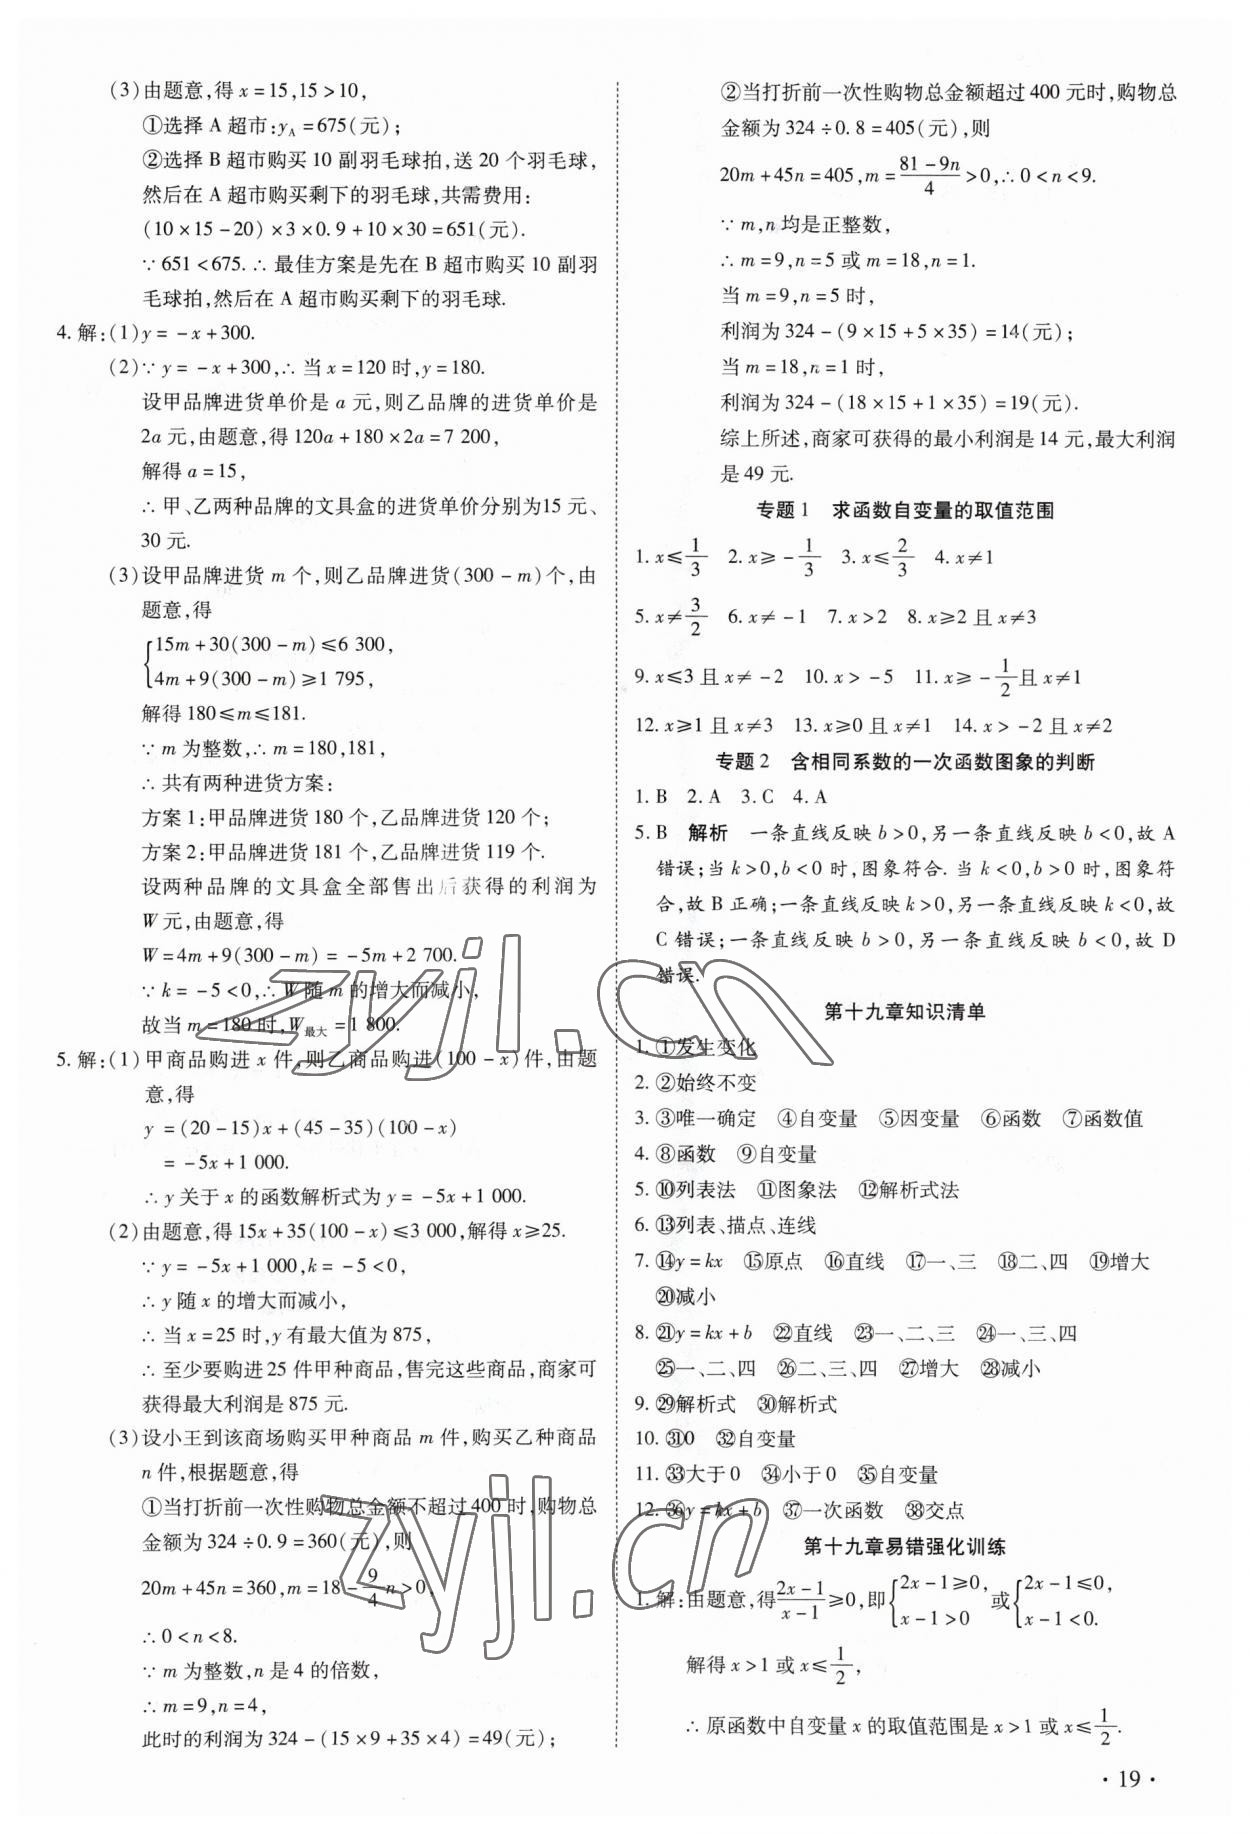 (3)由题意,得 x=15,15>10,
①选择 A 超市:y_A=675(元);
②选择 B 超市购买 10 副羽毛球拍,送 20 个羽毛球,
然后在 A 超市购买剩下的羽毛球,共需费用:
(10×15-20)×3×0.9+10×30=651(元).
∵651<675.∴最佳方案是先在 B 超市购买 10 副羽
毛球拍,然后在 A 超市购买剩下的羽毛球.
4.解:(1)y=-x+300.
(2)∵y=-x+300,∴当 x=120 时,y=180.
设甲品牌进货单价是 a 元,则乙品牌的进货单价是
2a 元,由题意,得 120a+180×2a=7 200,
解得 a=15,
∴甲、乙两种品牌的文具盒的进货单价分别为15 元、
30 元.
(3)设甲品牌进货 m 个,则乙品牌进货(300-m)个,由
题意,得
{15m+30(300-m)≤6 300,
4m+9(300-m)≥1 795,
解得 180≤m≤181.
∵m 为整数,∴m=180,181,
∴共有两种进货方案:
方案 1:甲品牌进货 180 个,乙品牌进货 120 个;
方案 2:甲品牌进货 181 个,乙品牌进货 119 个.
设两种品牌的文具盒全部售出后获得的利润为
W 元,由题意,得
W=4m+9(300-m)=-5m+2 700.
∵k=-5<0,∴W 随 m 的增大而减小,
故当 m=180 时,W最大=1 800.
5.解:(1)甲商品购进 x 件,则乙商品购进(100-x)件,由题
意,得
y=(20-15)x+(45-35)(100-x)
=-5x+1 000.
∴y 关于 x 的函数解析式为 y=-5x+1 000.
(2)由题意,得 15x+35(100-x)≤3 000,解得 x≥25.
∵y=-5x+1 000,k=-5<0,
∴y 随 x 的增大而减小,
∴当 x=25 时,y 有最大值为 875,
∴至少要购进 25 件甲种商品,售完这些商品,商家可
获得最大利润是 875 元.
(3)设小王到该商场购买甲种商品 m 件,购买乙种商品
n 件,根据题意,得
①当打折前一次性购物总金额不超过 400 时,购物总
金额为 324÷0.9=360(元),则
20m+45n=360,m=18-9/4n>0,
∴0<n<8.
∵m 为整数,n 是 4 的倍数,
∴m=9,n=4,
此时的利润为 324-(15×9+35×4)=49(元);
②当打折前一次性购物总金额超过 400 元时,购物总
金额为 324÷0.8=405(元),则
20m+45n=405,m=(81-9n)/4>0,∴0<n<9.
∵m,n 均是正整数,
∴m=9,n=5 或 m=18,n=1.
当 m=9,n=5 时,
利润为 324-(9×15+5×35)=14(元);
当 m=18,n=1 时,
利润为 324-(18×15+1×35)=19(元).
综上所述,商家可获得的最小利润是 14 元,最大利润
是 49 元.
专题 1 求函数自变量的取值范围
1.x≤1/3 2.x≥-1/3 3.x≤2/3 4.x≠1
5.x≠3/2 6.x≠-1 7.x>2 8.x≥2 且 x≠3
9.x≤3 且 x≠-2 10.x>-5 11.x≥-1/2且 x≠1
12.x≥1 且 x≠3 13.x≥0 且 x≠1 14.x>-2 且 x≠2
专题 2 含相同系数的一次函数图象的判断
1.B 2.A 3.C 4.A
5.B 解析 一条直线反映 b>0,另一条直线反映 b<0,故 A
错误;当 k>0,b<0 时,图象符合.当 k<0,b>0 时,图象符
合,故 B 正确;一条直线反映 k>0,另一条直线反映 k<0,故
C 错误;一条直线反映 b>0,另一条直线反映 b<0,故 D
错误.
第十九章知识清单
1.①发生变化
2.②始终不变
3.③唯一确定 ④自变量 ⑤因变量 ⑥函数 ⑦函数值
4.⑧函数 ⑨自变量
5.⑩列表法 ⑪图象法 ⑫解析式法
6.⑬列表、描点、连线
7.⑭y=kx ⑮原点 ⑯直线 ⑰一、三 ⑱二、四 ⑲增大
⑳减小
8.㉑y=kx+b ㉒直线 ㉓一、二、三 ㉔一、三、四
㉕一、二、四 ㉖二、三、四 ㉗增大 ㉘减小
9.㉙解析式 ㉚解析式
10.㉛0 ㉜自变量
11.㉝大于 0 ㉞小于 0 ㉟自变量
12.㊱y=kx+b ㊲一次函数 ㊳交点
第十九章易错强化训练
1.解:由题意,得(2x-1)/(x-1)≥0,即{2x-1≥0,x-1>0 或{2x-1≤0,x-1<0.
解得 x>1 或 x≤1/2,
∴原函数中自变量 x 的取值范围是 x>1 或 x≤1/2.
·19·
zyjl.cn
zyjl.cn